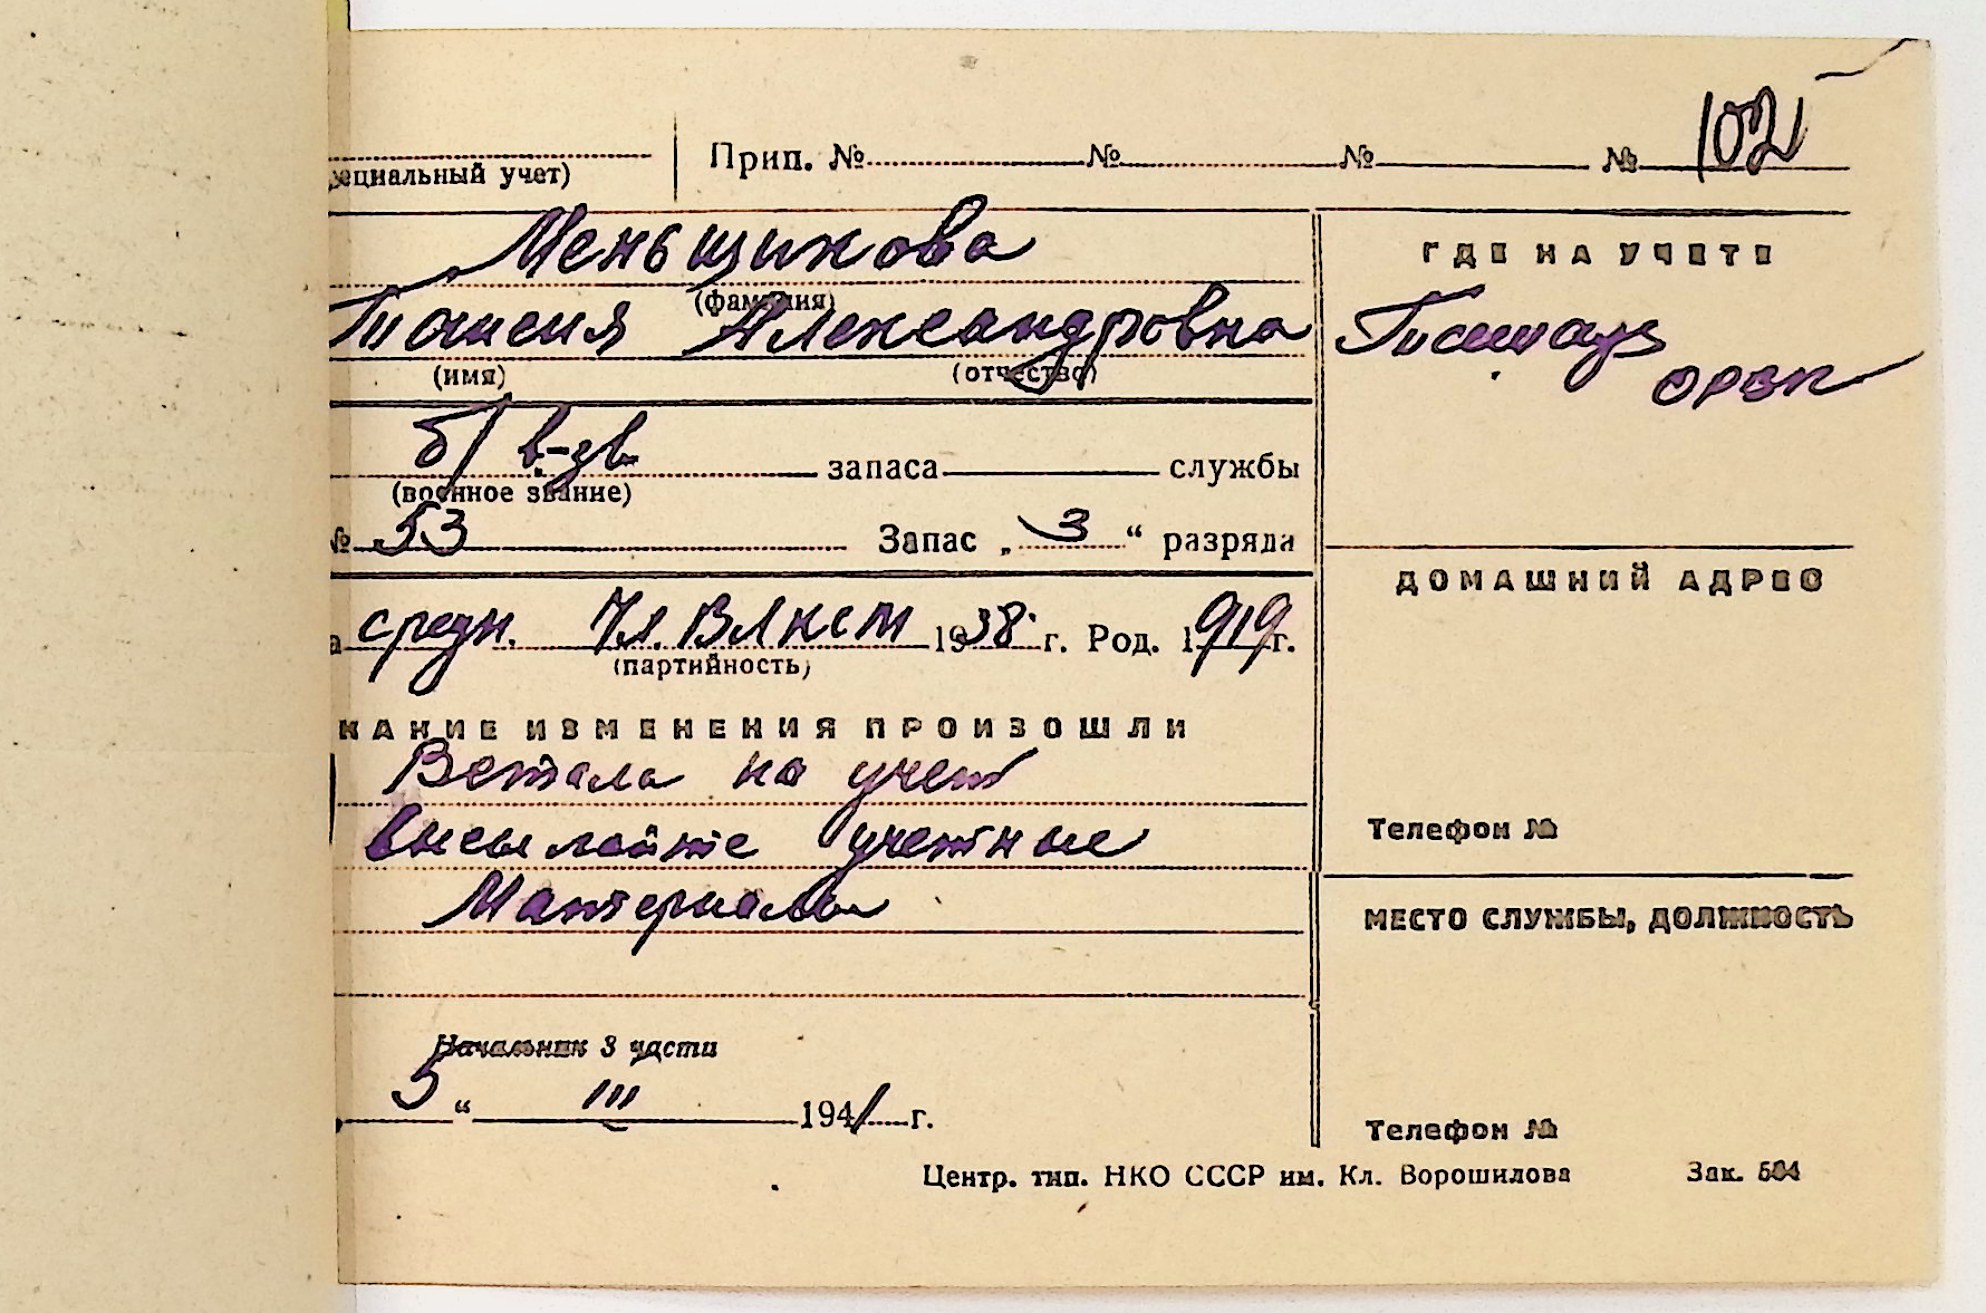 ециальный учет) Прип. № № № № 102
Меньщикова
(фамилия)
Таисия Александровна
(имя) (отчество)
б/ в-зв запаса службы
(военное звание)
№ 53 Запас „ 3 “ разряда
а средн. Чл. ВЛКСМ 1938 г. Род. 1919 г.
(партийность)
КАКИЕ ИЗМЕНЕНИЯ ПРОИЗОШЛИ
Встала на учет
Высылайте учетные
Материалы
Начальник 3 части
5 “ III 1941 г.
ГДЕ НА УЧЕТЕ
ОРВК
ДОМАШНИЙ АДРЕС
Телефон №
МЕСТО СЛУЖБЫ, ДОЛЖНОСТЬ
Телефон №
Центр. тип. НКО СССР им. Кл. Ворошилова Зак.